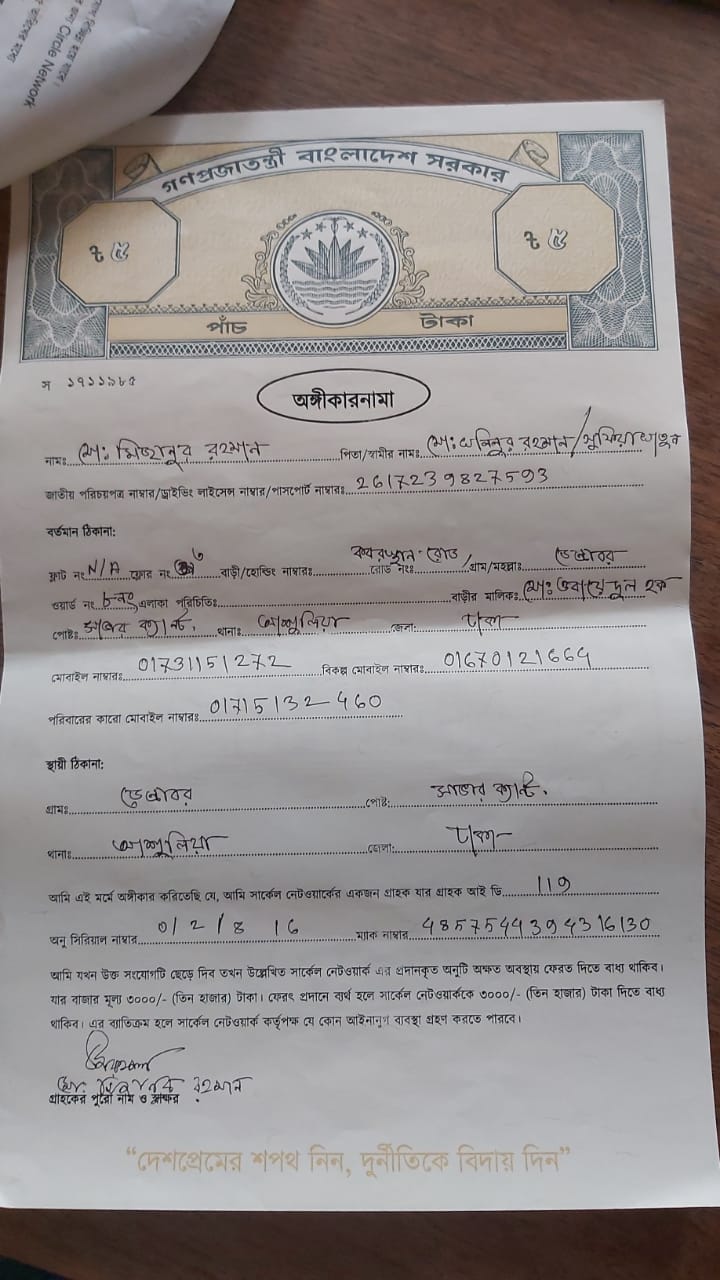 Circle Network
গণপ্রজাতন্ত্রী বাংলাদেশ সরকার
৳ ৫ ৳ ৫
পাঁচ টাকা
স ১৭১১৯৮৫
অঙ্গীকারনামা
নামঃ মোঃ মিজানুর রহমান পিতা/স্বামীর নামঃ রহমান/সুফিয়া খাতুন
জাতীয় পরিচয়পত্র নাম্বার/ড্রাইভিং লাইসেন্স নাম্বার/পাসপোর্ট নাম্বারঃ 2617239827593
বর্তমান ঠিকানা:
ফ্লাট নং N/A ফ্লোর নং ৬ বাড়ী/হোল্ডিং নাম্বারঃ কবরস্থান রোড রোড নংঃ /গ্রাম/মহল্লাঃ ডেন্ডাবর
ওয়ার্ড নং এলাকা পরিচিতিঃ বাড়ীর মালিকঃ মোঃ ওবায়েদুল হক
পোষ্টঃ সাভার ক্যান্ট. থানাঃ আশুলিয়া জেলা: ঢাকা
মোবাইল নাম্বারঃ 01731151272 বিকল্প মোবাইল নাম্বারঃ 01670121664
পরিবারের কারো মোবাইল নাম্বারঃ 01715132460
স্থায়ী ঠিকানা:
গ্রামঃ ডেন্ডাবর পোষ্ট: সাভার ক্যান্ট.
থানাঃ আশুলিয়া জেলা: ঢাকা
আমি এই মর্মে অঙ্গীকার করিতেছি যে, আমি সার্কেল নেটওয়ার্কের একজন গ্রাহক যার গ্রাহক আই ডি 119
অনু সিরিয়াল নাম্বার 0/2/8 16 ম্যাক নাম্বার 48575443943 16130
আমি যখন উক্ত সংযোগটি ছেড়ে দিব তখন উল্লেখিত সার্কেল নেটওয়ার্ক এর প্রদানকৃত অনুটি অক্ষত অবস্থায় ফেরত দিতে বাধ্য থাকিব।
যার বাজার মূল্য ৩০০০/- (তিন হাজার) টাকা। ফেরৎ প্রদানে ব্যর্থ হলে সার্কেল নেটওয়ার্ককে ৩০০০/- (তিন হাজার) টাকা দিতে বাধ্য
থাকিব। এর ব্যতিক্রম হলে সার্কেল নেটওয়ার্ক কর্তৃপক্ষ যে কোন আইনানুগ ব্যবস্থা গ্রহণ করতে পারবে।
মোঃ মিজানুর রহমান
গ্রাহকের পুরো নাম ও স্বাক্ষর
“দেশপ্রেমের শপথ নিন, দুর্নীতিকে বিদায় দিন”